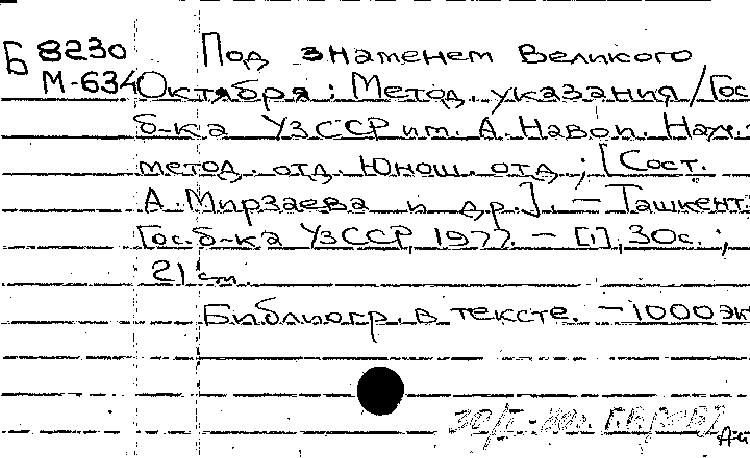 Б 8230 Под знаменем Великого
М-634 Октября: Метод. указания / Гос.
б-ка УзССР им. А. Навои. Науч.-
метод. отд. Юнош. отд.; [Сост.
А. Мирзаева и др.]. – Ташкент:
Гос. б-ка УзССР, 1977. – [1], 30с.;
21 см.
Библиогр. в тексте. – 1000 эк